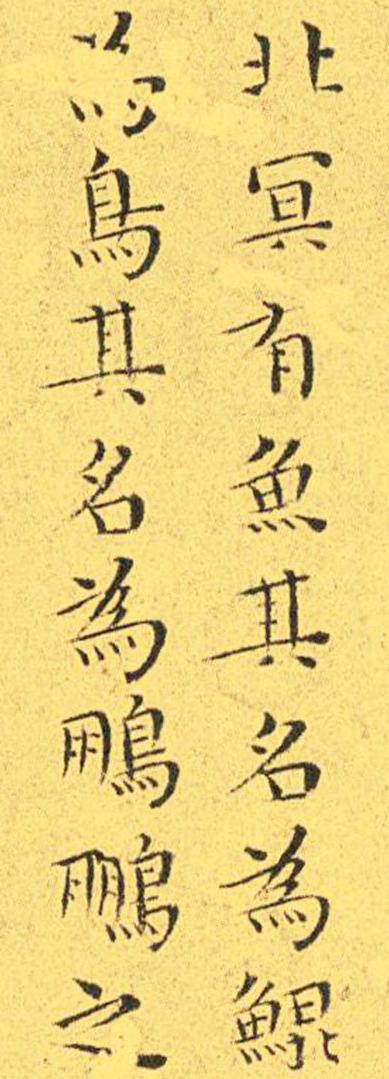 北冥有魚其名為鯤
鳥其名為鵬鵬之